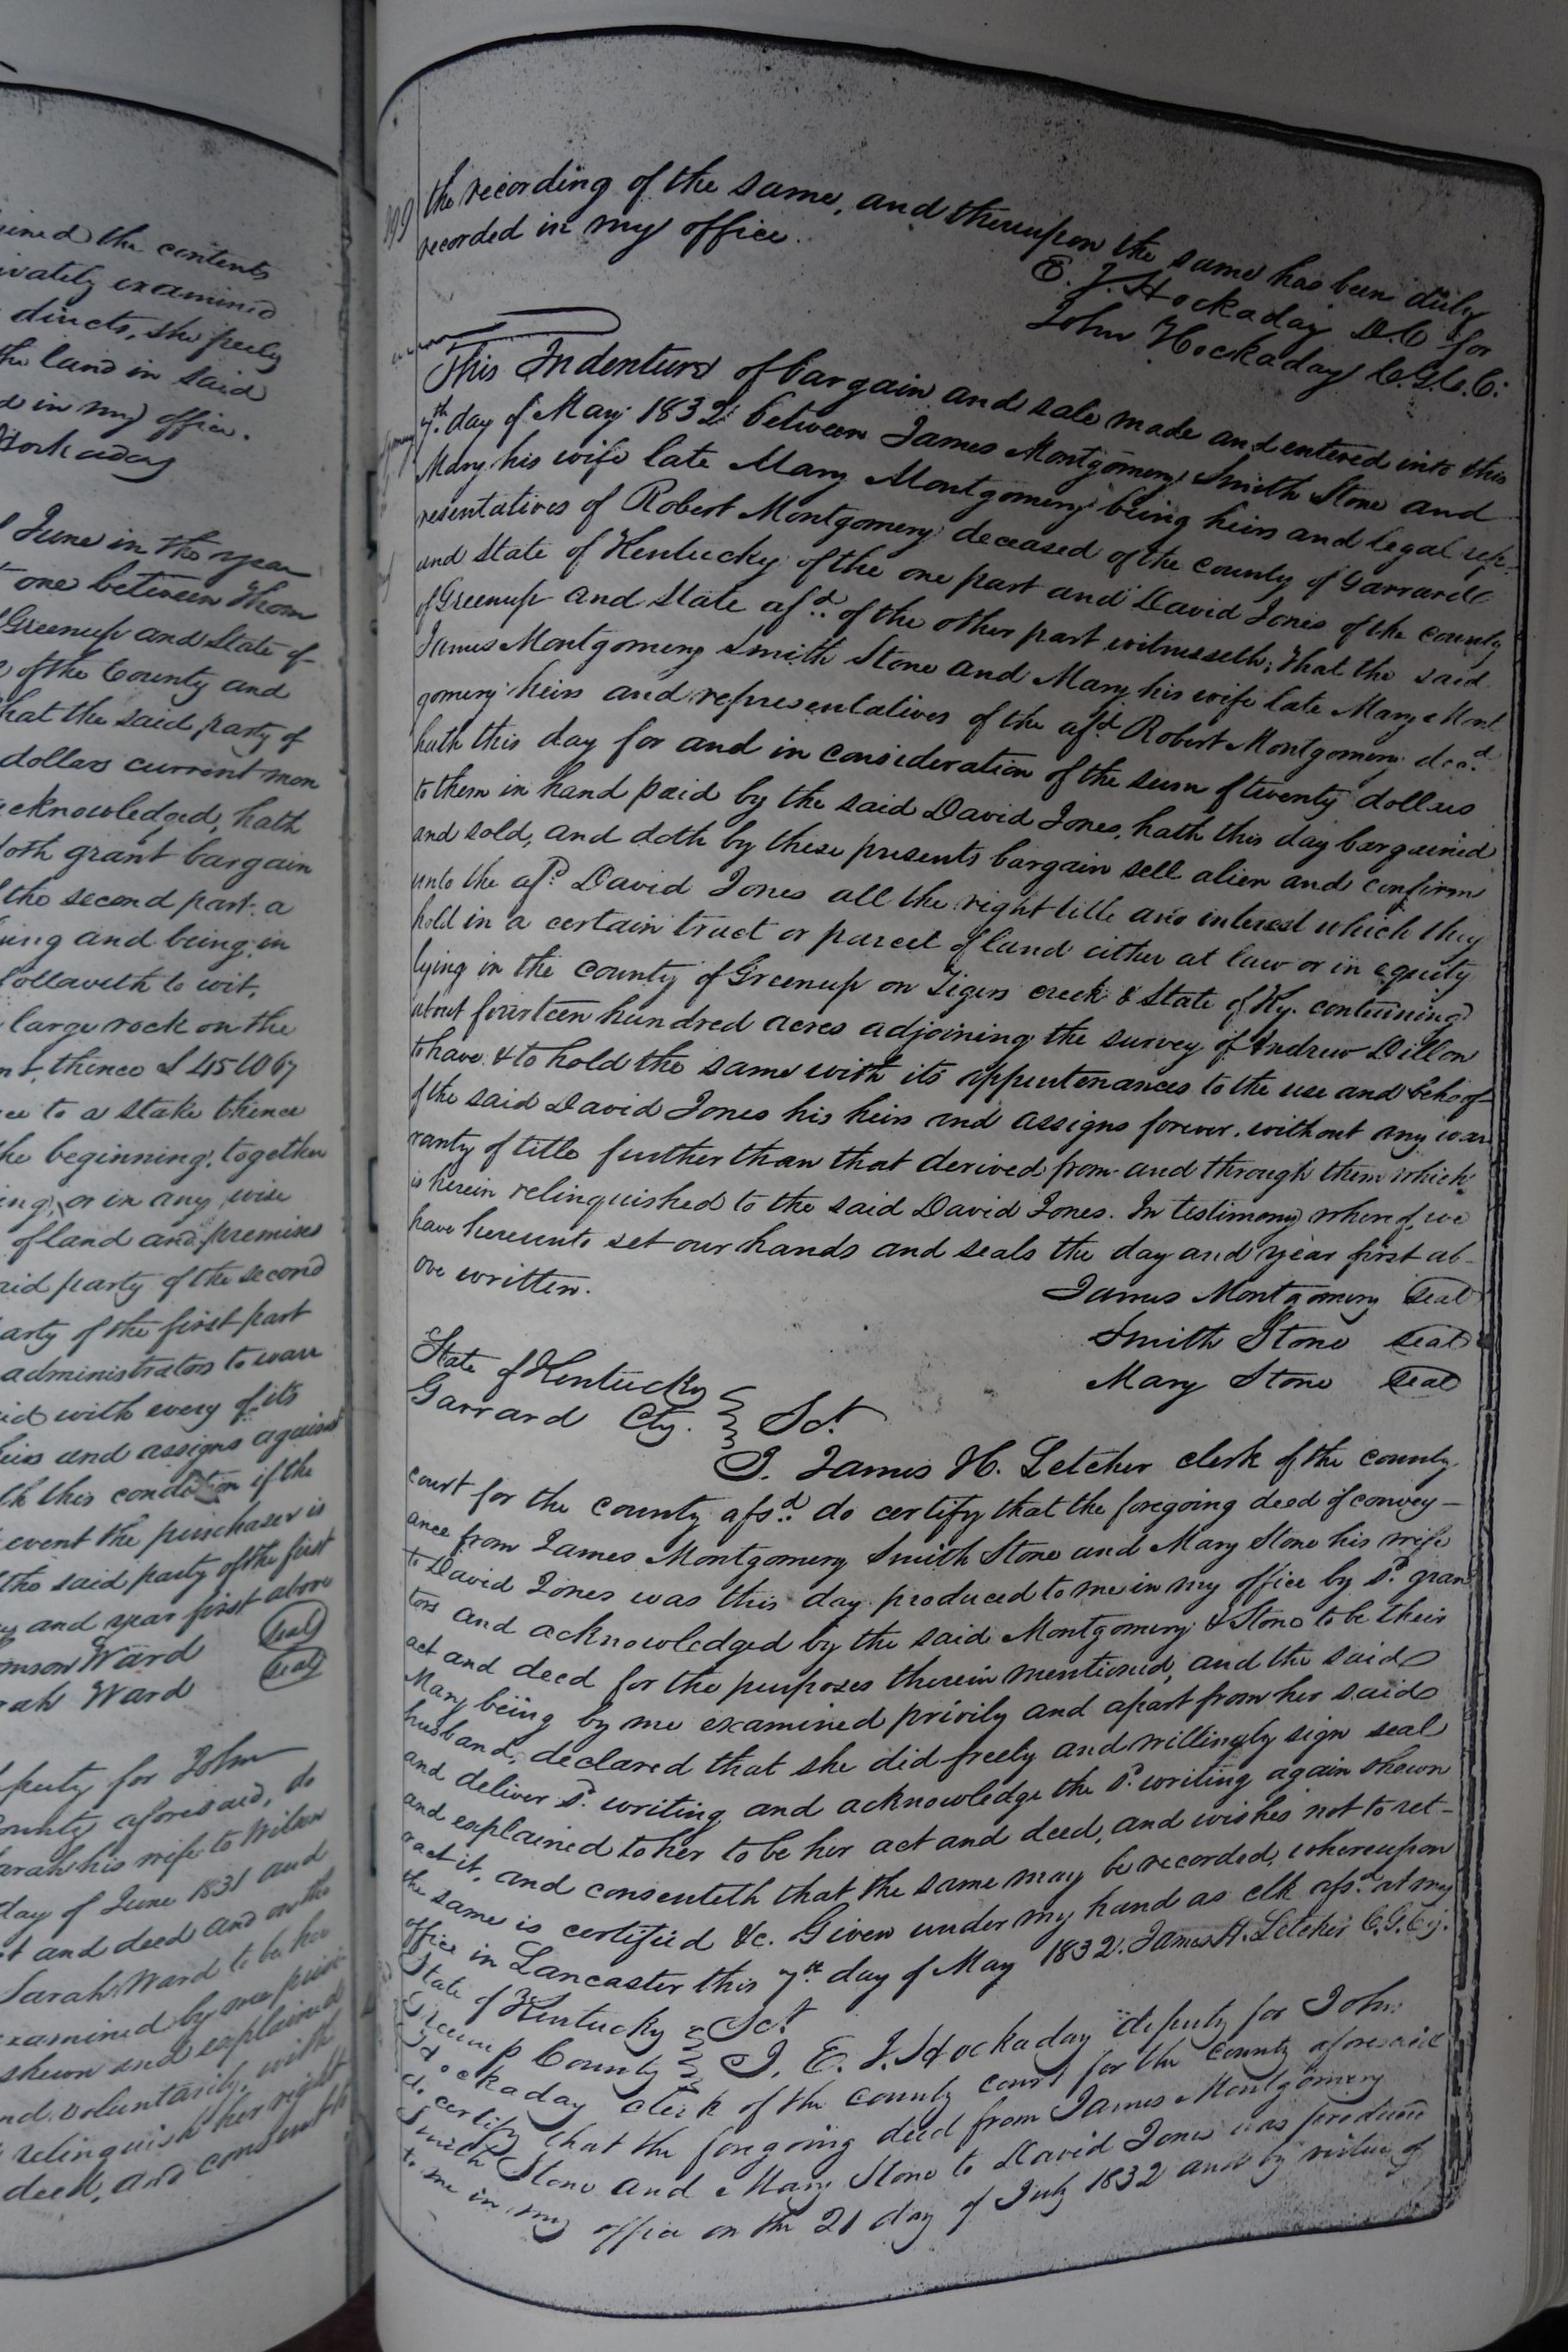 ined the contents
ivately examined
directs, she freely
the land in said
d in my office.
Hockaday
June in the year
one between Thom
Greenup and State of
of the County and
that the said party of
dollars current mon
acknowledged, hath
doth grant bargain
the second part. a
ing and being in
followeth to wit,
large rock on the
thence S 45 W 67
to a stake thence
the beginning, together
ing, or in any wise
of land and premises
aid party of the second
arty of the first part
administrators to warr
id with every of its
heirs and assigns against
this condition if the
event the purchaser is
the said party of the first
and year first above
omson Ward seal
rah Ward seal
puty for John
ounty aforesaid, do
arah his wife to Wilson
day of June 1831 and
t and deed and on the
Sarah Ward to be her
examined by me privi
shewn and explained
nd voluntarily, with
relinquish her right
deed, and consenteth
199
the recording of the same, and thereupon the same has been duly
recorded in my office.
E. J. Hockaday D.C for
John Hockaday C.G.C.C.
This Indenture of bargain and sale made and entered into this
7th. day of May 1832 between James Montgomery Smith Stone and
Mary his wife late Mary Montgomery being heirs and legal rep-
resentatives of Robert Montgomery deceased of the county of Garrard
and State of Kentucky of the one part and David Jones of the county
of Greenup and State afd. of the other part witnesseth; That the said
James Montgomery Smith Stone and Mary his wife late Mary Mont
gomery heirs and representatives of the afd Robert Montgomery decd.
hath this day for and in consideration of the sum of twenty dollars
to them in hand paid by the said David Jones, hath this day bargained
and sold, and doth by these presents bargain sell alien and confirm
unto the afd. David Jones all the right title and interest which they
hold in a certain tract or parcel of land either at law or in equity
lying in the county of Greenup on Tigers creek & State of Ky. containing
about fourteen hundred acres adjoining the survey of Andrew Dillon
to have & to hold the same with its appurtenances to the use and behoof
of the said David Jones his heirs and assigns forever, without any war
ranty of title further than that derived from and through them which
is herein relinquished to the said David Jones. In testimony whereof, we
have hereunto set our hands and seals the day and year first ab-
ove written.
James Montgomery seal
Smith Stone seal
Mary Stone seal
State of Kentucky
Garrard Cty. Sct.
I. James H. Letcher clerk of the county
court for the county afsd. do certify that the foregoing deed of convey-
ance from James Montgomery Smith Stone and Mary Stone his wife
to David Jones was this day produced to me in my office by sd. gran
tors and acknowledged by the said Montgomery & Stone to be their
act and deed for the purposes therein mentioned, and the said
Mary being by me examined privily and apart from her said
husband, declared that she did freely and willingly sign seal
and deliver sd. writing and acknowledge the sd. writing again shown
and explained to her to be her act and deed, and wishes not to ret-
ract it, and consenteth that the same may be recorded, whereupon
the same is certified &c. Given under my hand as clk afsd. at my
office in Lancaster this 7th day of May 1832. James H. Letcher C.G.Cy.
State of Kentucky
Greenup County Sct
I, E. J. Hockaday deputy for John
Hockaday clerk of the county court for the county aforesaid
do certify that the foregoing deed from James Montgomery
Smith Stone and Mary Stone to David Jones was produced
to me in my office on the 21 day of July 1832 and by virtue of